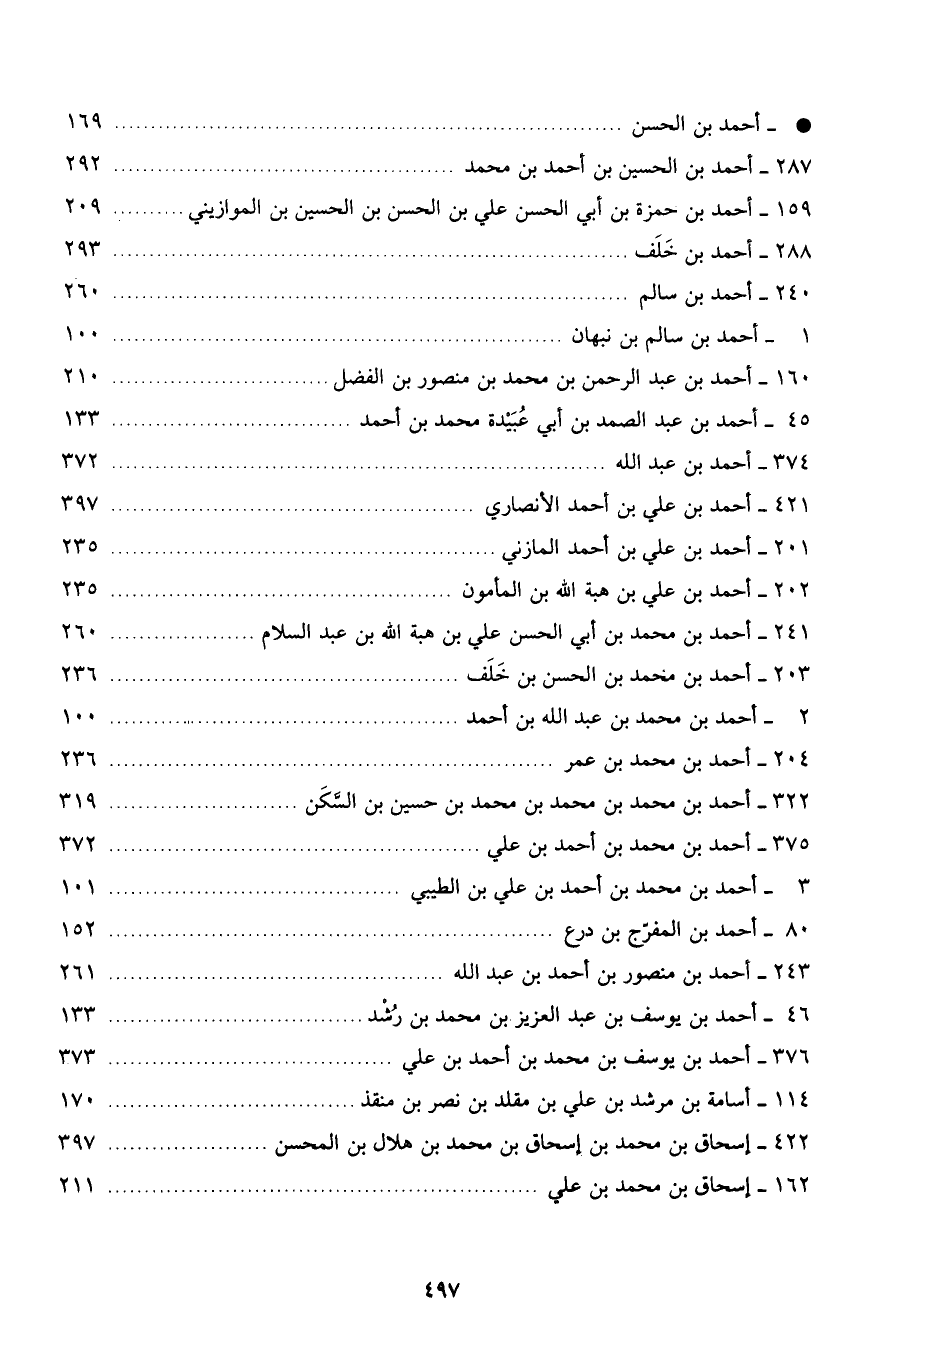 ● ـ أحمد بن الحسن ........ ١٦٩
٢٨٧ ـ أحمد بن الحسين بن أحمد بن محمد ........ ٢٩٢
١٥٩ ـ أحمد بن حمزة بن أبي الحسن علي بن الحسن بن الحسين بن الموازيني ........ ٢٠٩
٢٨٨ ـ أحمد بن خَلَف ........ ٢٩٣
٢٤٠ ـ أحمد بن سالم ........ ٢٦٠
١ ـ أحمد بن سالم بن نبهان ........ ١٠٠
١٦٠ ـ أحمد بن عبد الرحمن بن محمد بن منصور بن الفضل ........ ٢١٠
٤٥ ـ أحمد بن عبد الصمد بن أبي عُبَيْدة محمد بن أحمد ........ ١٣٣
٣٧٤ ـ أحمد بن عبد الله ........ ٣٧٢
٤٢١ ـ أحمد بن علي بن أحمد الأنصاري ........ ٣٩٧
٢٠١ ـ أحمد بن علي بن أحمد المازني ........ ٢٣٥
٢٠٢ ـ أحمد بن علي بن هبة الله بن المأمون ........ ٢٣٥
٢٤١ ـ أحمد بن محمد بن أبي الحسن علي بن هبة الله بن عبد السلام ........ ٢٦٠
٢٠٣ ـ أحمد بن محمد بن الحسن بن خَلَف ........ ٢٣٦
٢ ـ أحمد بن محمد بن عبد الله بن أحمد ........ ١٠٠
٢٠٤ ـ أحمد بن محمد بن عمر ........ ٢٣٦
٣٢٢ ـ أحمد بن محمد بن محمد بن محمد بن حسين بن السَّكَن ........ ٣١٩
٣٧٥ ـ أحمد بن محمد بن أحمد بن علي ........ ٣٧٢
٣ ـ أحمد بن محمد بن أحمد بن علي بن الطيبي ........ ١٠١
٨٠ ـ أحمد بن المفرّج بن درع ........ ١٥٢
٢٤٣ ـ أحمد بن منصور بن أحمد بن عبد الله ........ ٢٦١
٤٦ ـ أحمد بن يوسف بن عبد العزيز بن محمد بن رُشْد ........ ١٣٣
٣٧٦ ـ أحمد بن يوسف بن محمد بن أحمد بن علي ........ ٣٧٣
١١٤ ـ أسامة بن مرشد بن علي بن مقلد بن نصر بن منقذ ........ ١٧٠
٤٢٢ ـ إسحاق بن محمد بن إسحاق بن محمد بن هلال بن المحسن ........ ٣٩٧
١٦٢ ـ إسحاق بن محمد بن علي ........ ٢١١
٤٩٧